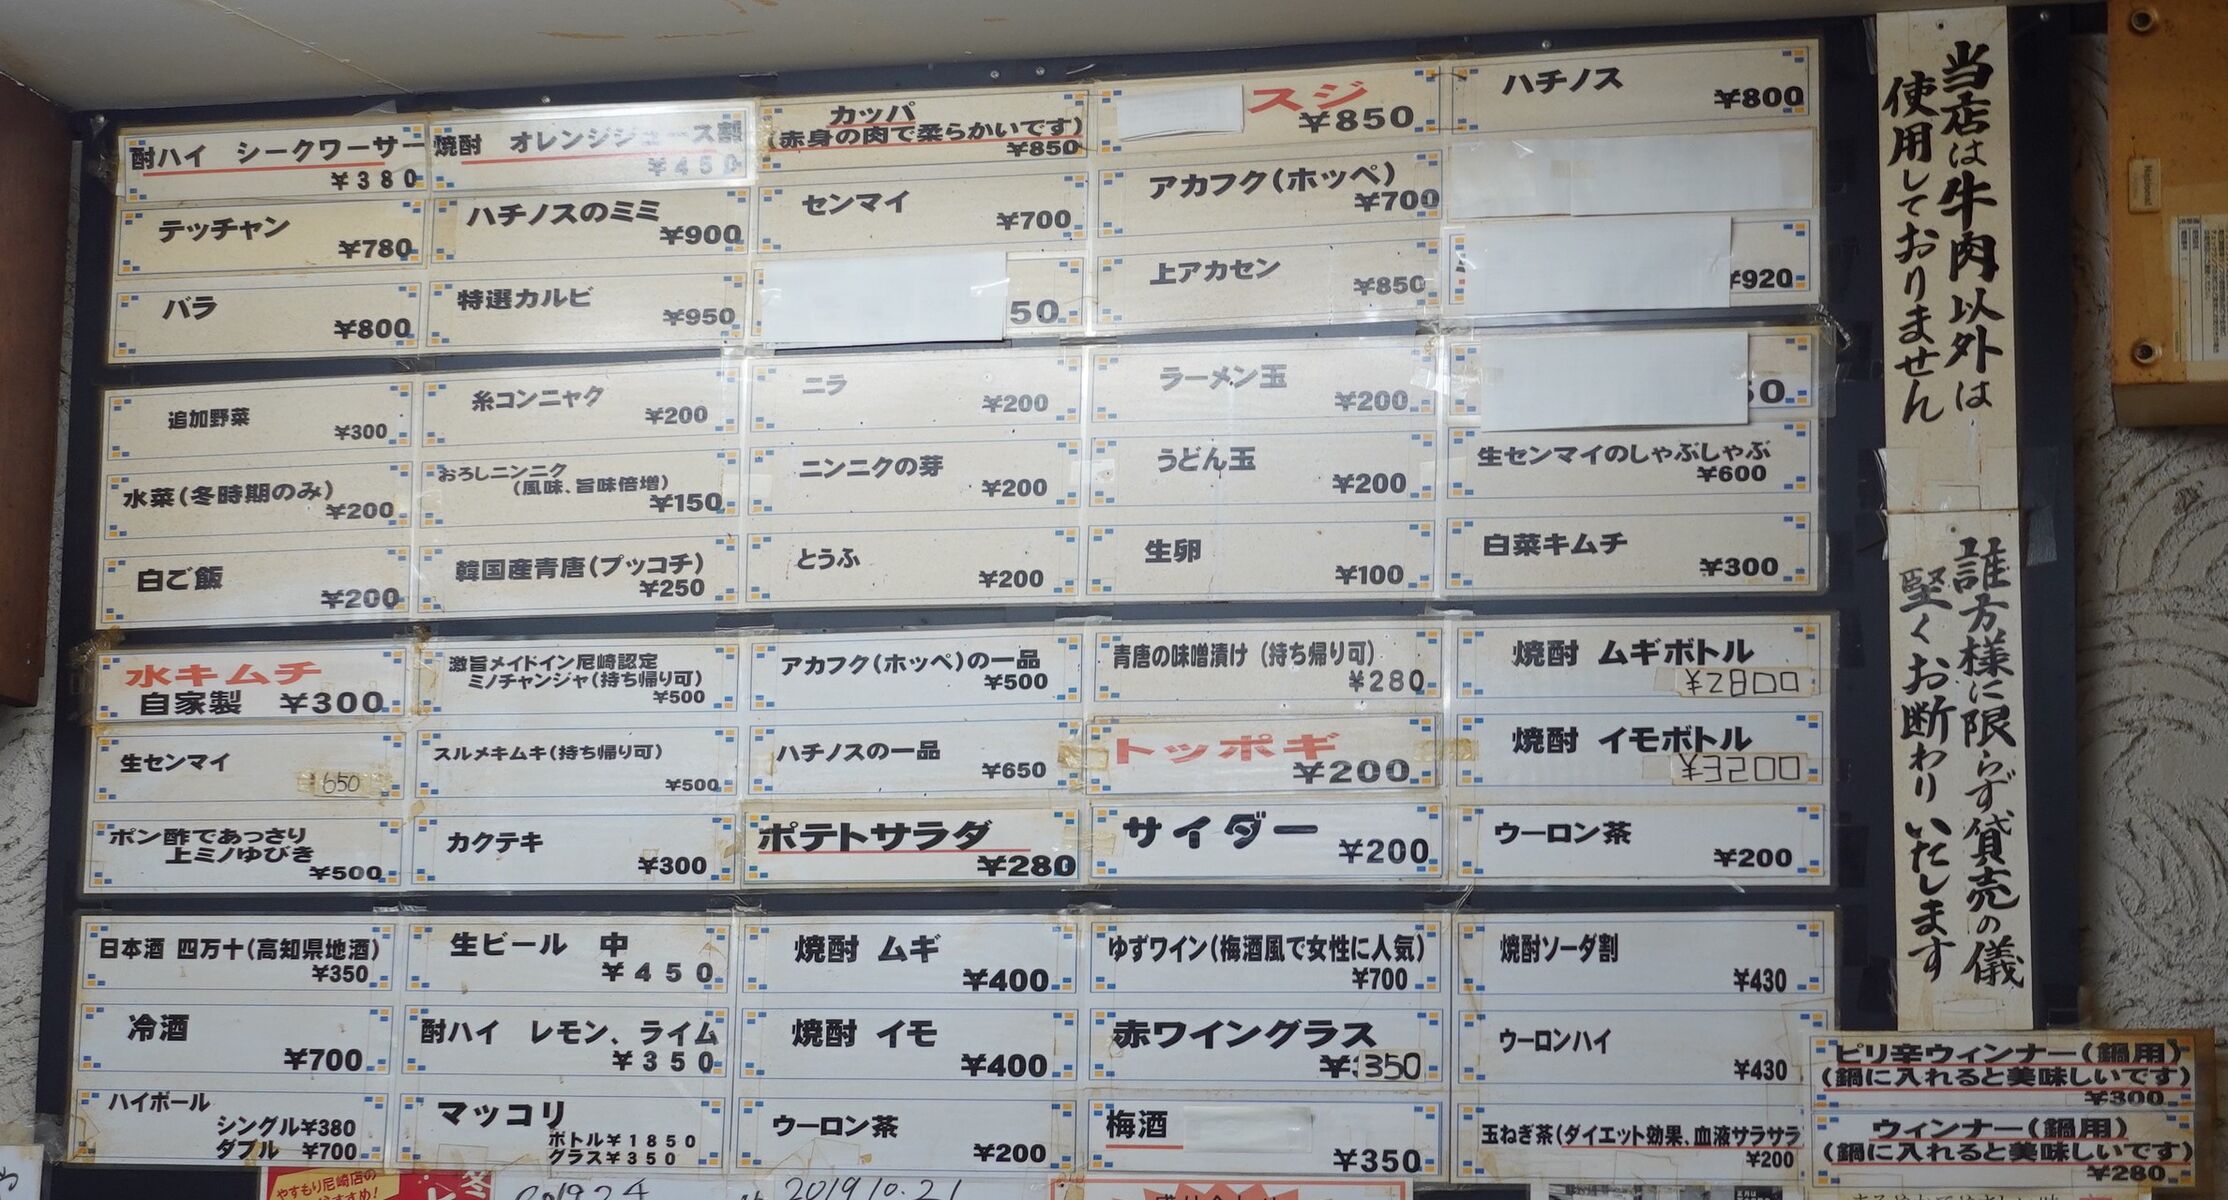 酎ハイ シークワーサー
¥380
焼酎 オレンジジュース割
¥450
カッパ
(赤身の肉で柔らかいです)
¥850
スジ
¥850
ハチノス
¥800
テッチャン
¥780
ハチノスのミミ
¥900
センマイ
¥700
アカフク(ホッペ)
¥700
バラ
¥800
特選カルビ
¥950
50
上アカセン
¥850
¥920
追加野菜
¥300
糸コンニャク
¥200
ニラ
¥200
ラーメン玉
¥200
50
水菜(冬時期のみ)
¥200
おろしニンニク
(風味、旨味倍増)
¥150
ニンニクの芽
¥200
うどん玉
¥200
生センマイのしゃぶしゃぶ
¥600
白ご飯
¥200
韓国産青唐(プッコチ)
¥250
とうふ
¥200
生卵
¥100
白菜キムチ
¥300
水キムチ
自家製 ¥300
激旨メイドイン尼崎認定
ミノチャンジャ(持ち帰り可)
¥500
アカフク(ホッペ)の一品
¥500
青唐の味噌漬け(持ち帰り可)
¥280
焼酎 ムギボトル
¥2800
生センマイ
650
スルメキムキ(持ち帰り可)
¥500
ハチノスの一品
¥650
トッポギ
¥200
焼酎 イモボトル
¥3200
ポン酢であっさり
上ミノゆびき
¥500
カクテキ
¥300
ポテトサラダ
¥280
サイダー
¥200
ウーロン茶
¥200
日本酒 四万十(高知県地酒)
¥350
生ビール 中
¥450
焼酎 ムギ
¥400
ゆずワイン(梅酒風で女性に人気)
¥700
焼酎ソーダ割
¥430
冷酒
¥700
酎ハイ レモン、ライム
¥350
焼酎 イモ
¥400
赤ワイングラス
¥350
ウーロンハイ
¥430
ハイボール
シングル¥380
ダブル ¥700
マッコリ
ボトル¥1850
グラス¥350
ウーロン茶
¥200
梅酒
¥350
玉ねぎ茶(ダイエット効果、血液サラサラ
¥200
ピリ辛ウィンナー(鍋用)
(鍋に入れると美味しいです)
¥300
ウィンナー(鍋用)
(鍋に入れると美味しいです)
¥280
当店は牛肉以外は
使用しておりません
誰方様に限らず、貸売の儀
堅くお断わりいたします
National
やすもり尼崎店の
2019 10.21